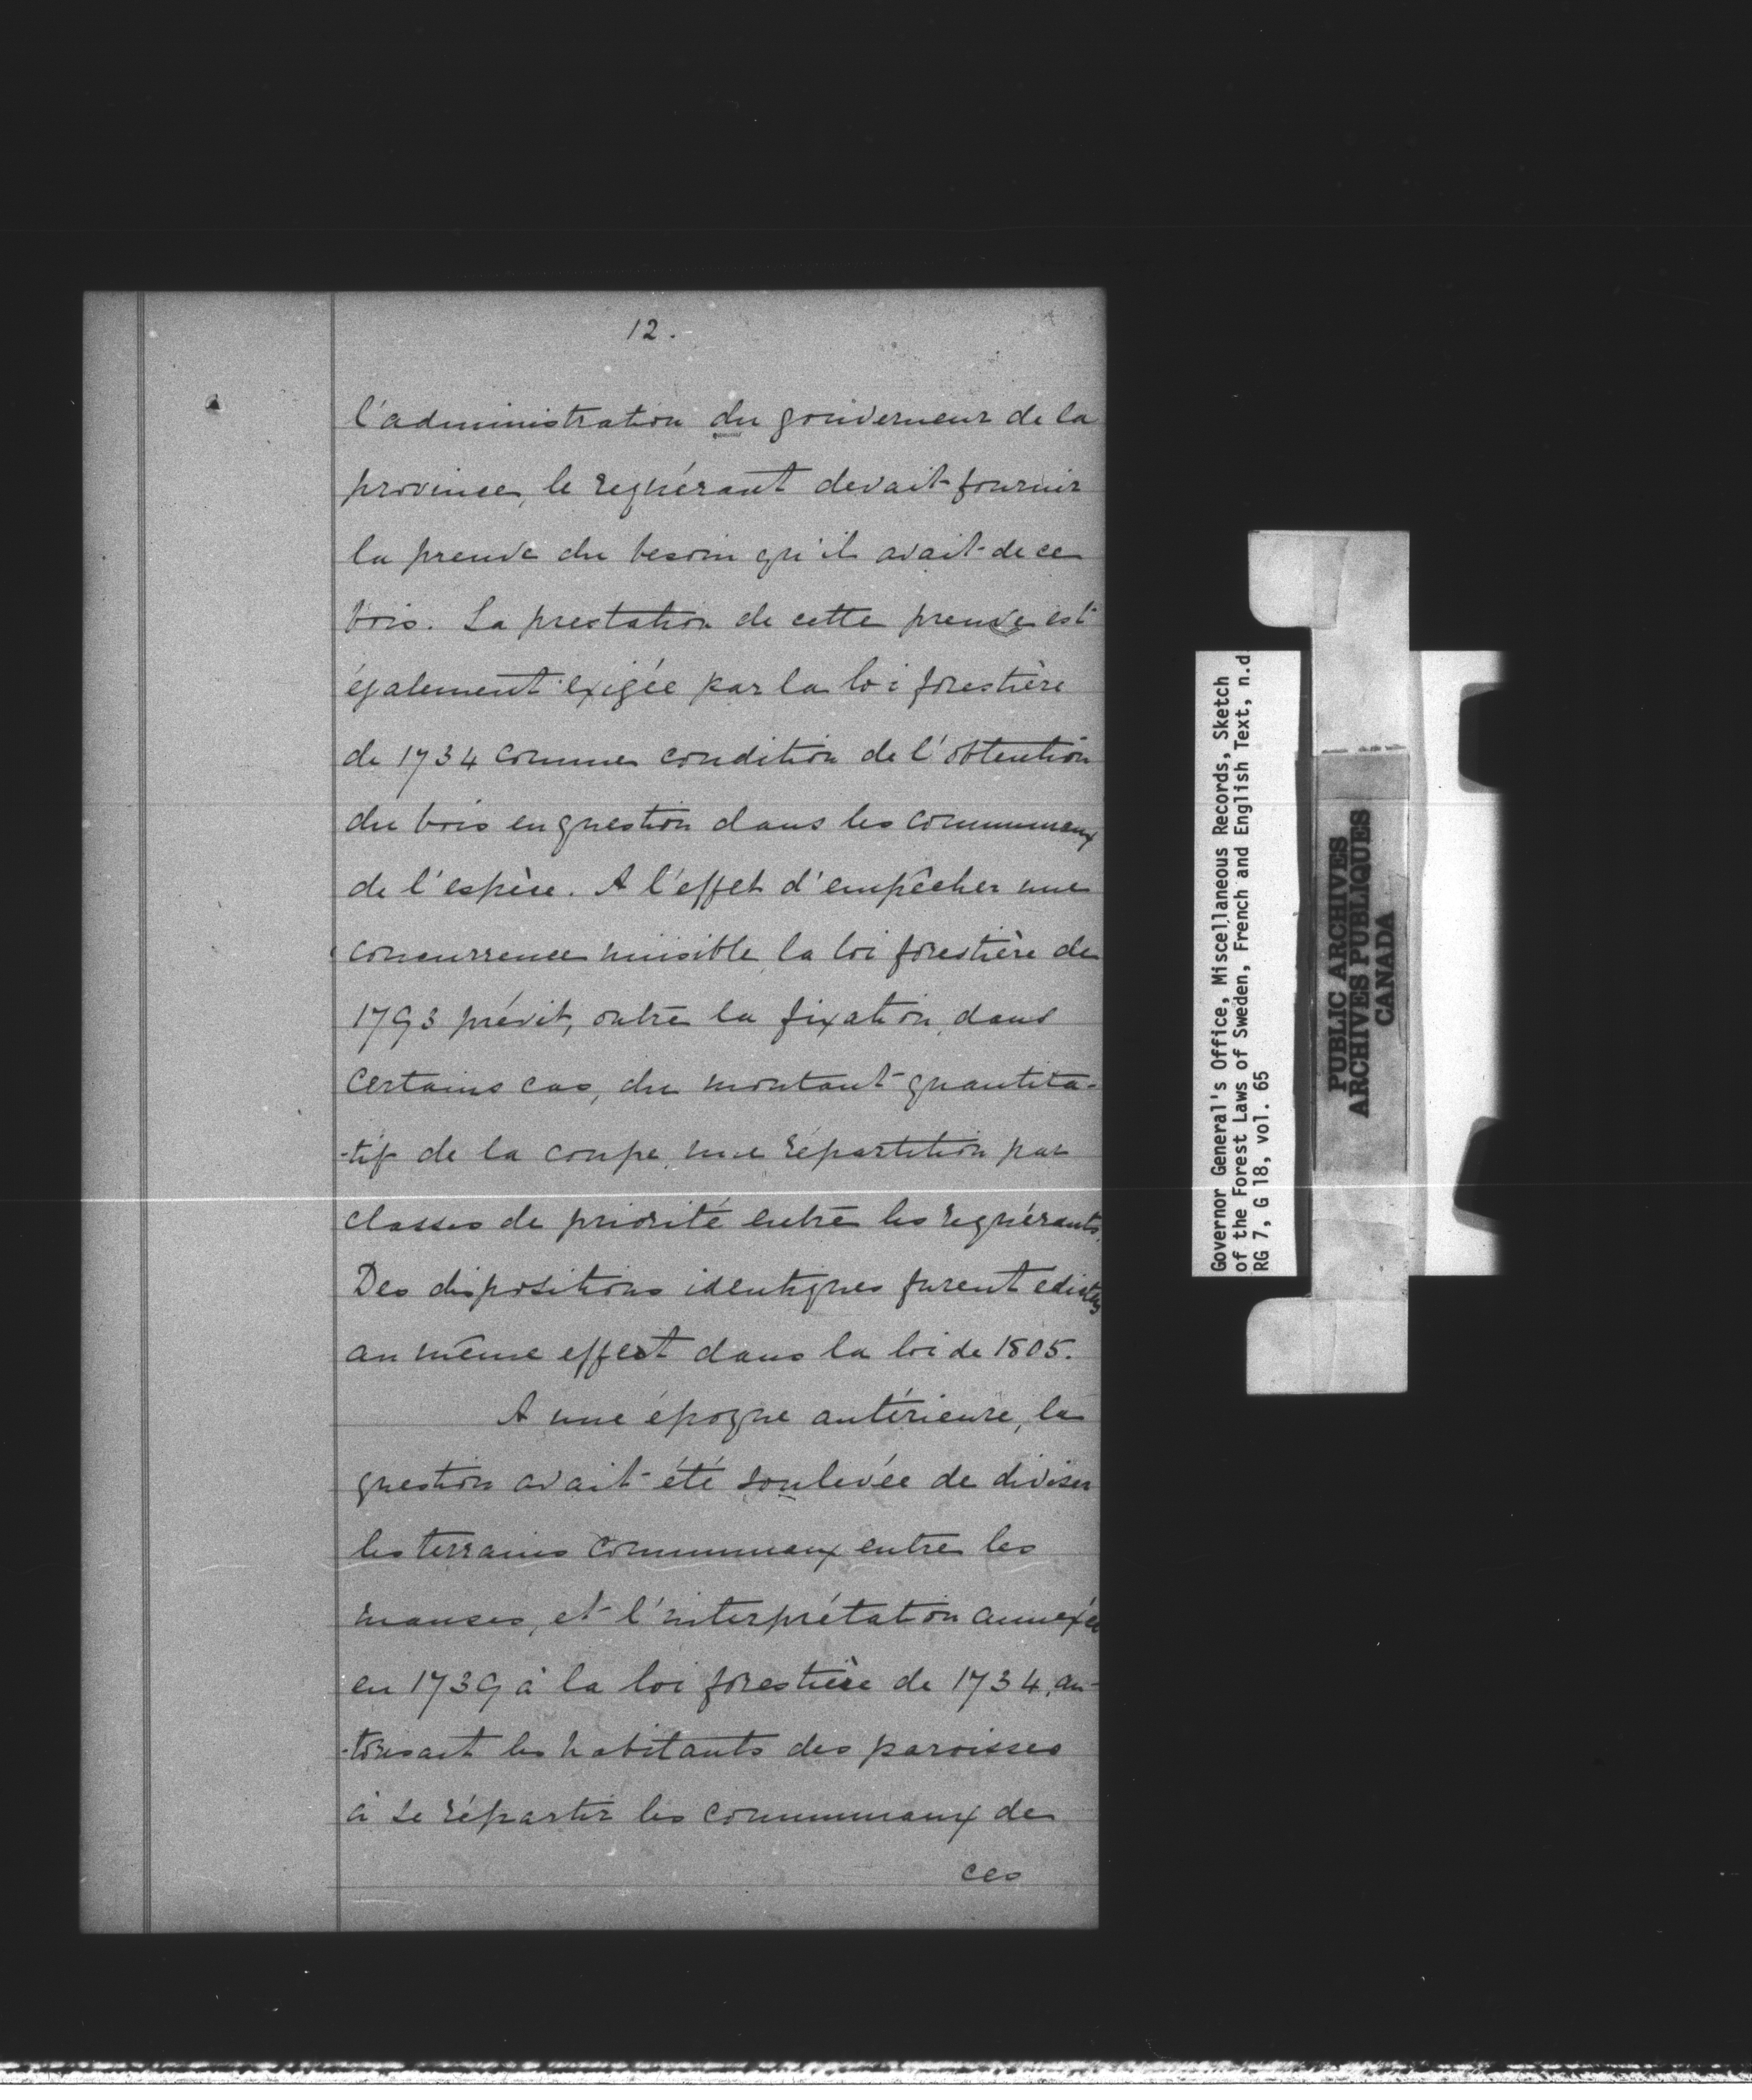 12.
l'administration du gouverneur de la
province, le requérant devait fournir
la preuve du besoin qu'il avait de ce
bois. La prestation de cette preuve est
également exigée par la loi forestière
de 1734 comme condition de l'obtention
du bois en question dans les communaux
de l'espèce. A l'effet d'empêcher une
concurrence nuisible, la loi forestière de
1793 prévit, outre la fixation, dans
certains cas, du montant quantita-
-tif de la coupe, une répartition par
classes de priorité entre les requérants.
Des dispositions identiques furent edictées
au même effect dans la loi de 1805.
A une époque antérieure, la
question avait été soulevée de diviser
les terrains communaux entre les
manses, et l'interprétation annexée
en 1739 à la loi forestière de 1734, au-
-torisait les habitants des paroisses
à se répartir les communaux de
ces
Governor General's Office, Miscellaneous Records, Sketch
of the Forest Laws of Sweden, French and English Text, n.d
RG 7, G 18, vol. 65
PUBLIC ARCHIVES
ARCHIVES PUBLIQUES
CANADA